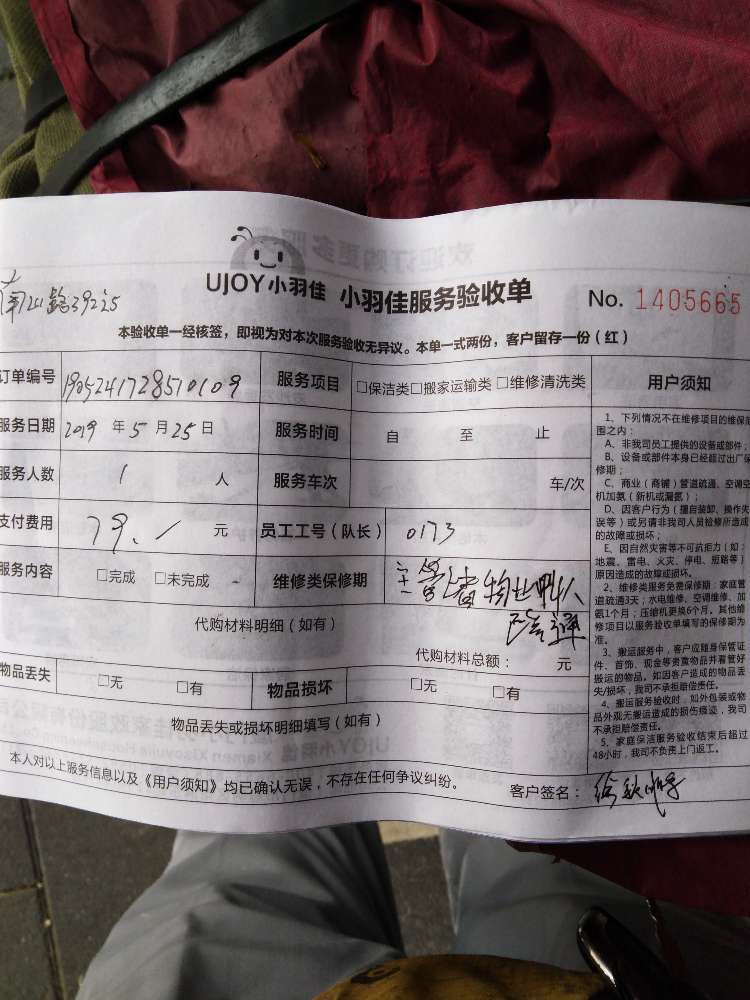 UJOY小羽佳 小羽佳服务验收单 No. 1405665
本验收单一经核签，即视为对本次服务验收无异议。本单一式两份，客户留存一份（红）
订单编号 1905241728510109 服务项目 □保洁类□搬家运输类□维修清洗类 用户须知
服务日期 2019 年 5 月 25 日 服务时间 自 至 止
服务人数 1 人 服务车次 车/次
支付费用 79. 元 员工工号（队长） 0173
服务内容 □完成 □未完成 维修类保修期
代购材料明细（如有）
代购材料总额： 元
物品丢失 □无 □有 物品损坏 □无 □有
物品丢失或损坏明细填写（如有）
本人对以上服务信息以及《用户须知》均已确认无误，不存在任何争议纠纷。 客户签名：
1、下列情况不在维修项目的维保范
围之内：
A、非我司员工提供的设备或部件；
B、设备或部件本身已经超过出厂保
修期；
C、商业（商铺）管道疏通、空调空
机加氨（新机或漏氨）；
D、因客户行为（擅自装卸、操作失
误等）或另请非我司人员检修所造成
的故障或损坏；
E、因自然灾害等不可抗拒力（如：
地震、雷电、火灾、停电、短路等）
原因造成的故障或损坏。
2、维修类服务免费保修期：家庭管
道疏通3天；水电维修、空调维修、加
氨1个月；压缩机更换6个月。其他维
修项目以服务验收单填写的保修期为
准。
3、搬运服务中，客户应随身保管证
件、首饰、现金等贵重物品并看管好
搬运的物品。如因客户造成的物品丢
失/损坏，我司不承担赔偿责任。
4、搬运服务验收时，如外包装或物
品外观无搬运造成的损伤痕迹，我司
不承担赔偿责任。
5、家庭保洁服务验收结束后超过
48小时，我司不负责上门返工。